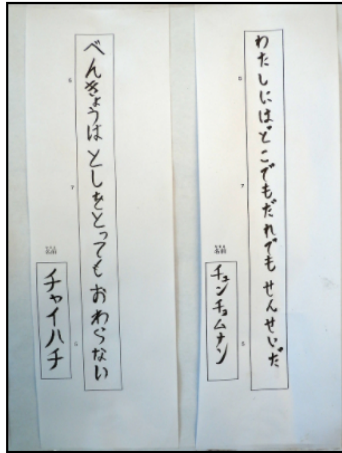 わたしにはどこでもだれでも せんせいだ
チュンチョムナン
べんきょうは としをとっても おわらない
チャイハチ